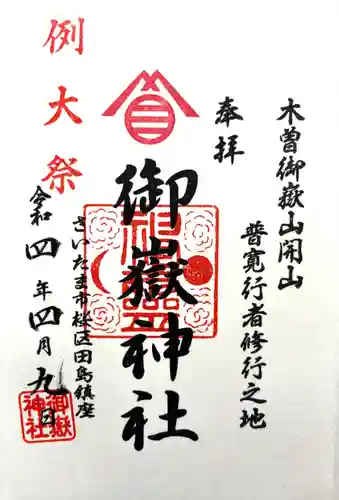 木曽御嶽山開山
普寛行者修行之地
奉拝
御嶽神社
例大祭
さいたま市桜区田島鎮座
令和四年四月九日
御嶽
神社